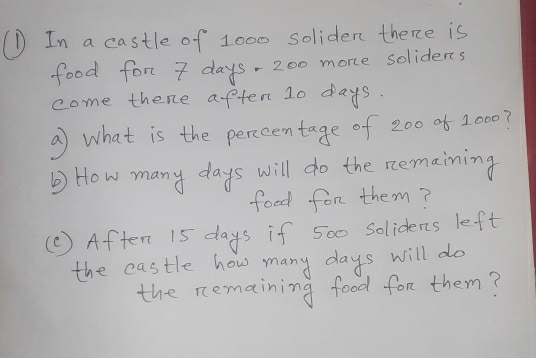 (1) In a castle of 1000 solider there is
food for 7 days. 200 more soliders
come there after 10 days.
a) What is the percentage of 200 of 1000?
b) How many days will do the remaining
food for them?
(c) After 15 days if 500 soliders left
the castle how many days will do
the remaining food for them?